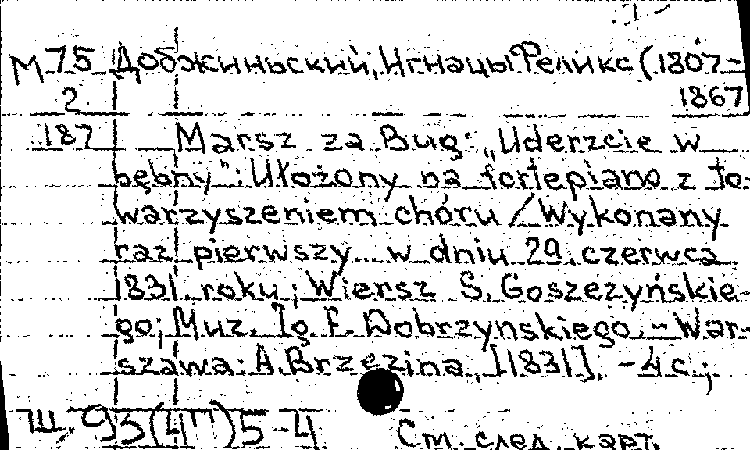 М 75 Добжиньский, Игнацы Феликс (1807-
2 1867)
187 Marsz za Bug: „Uderzcie w
bębny": Ułożony na fortepiano z to-
warzyszeniem chóru / Wykonany
raz pierwszy w dniu 29 czerwca
1831 roku; Wiersz S. Goszczyńskie-
go; Muz. Ig. F. Dobrzynskiego. - War-
szawa: A. Brzezina, [1831]. - 4 с.;
Ш 93(4П)5-4 См. след. карт.